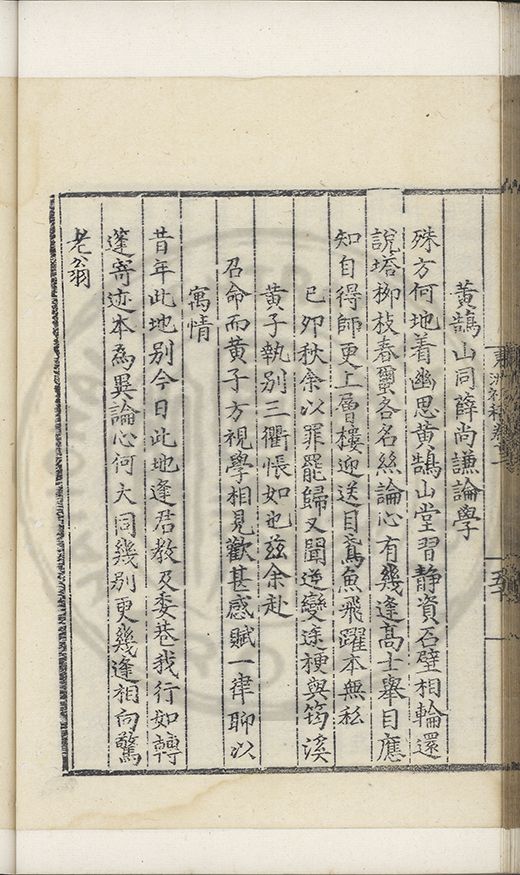 黃鵠山同薛尚謙論學
殊方何地着幽思黃鵠山堂習静資石壁相輪還
說塔柳枝春蠒各名絲論心有幾逢高士舉目應
知自得師更上層樓迎送目鳶魚飛躍本無私
已夘秋余以罪罷歸又聞逆變途梗與筠溪
黃子執別三衢悵如也兹余赴
召命而黃子方視學相見歡甚感賦一律聊以
寓情
昔年此地別今日此地逢君教及委巷我行如轉
蓬寄迹本為異論心何大同幾別更幾逢相向驚
老翁
五